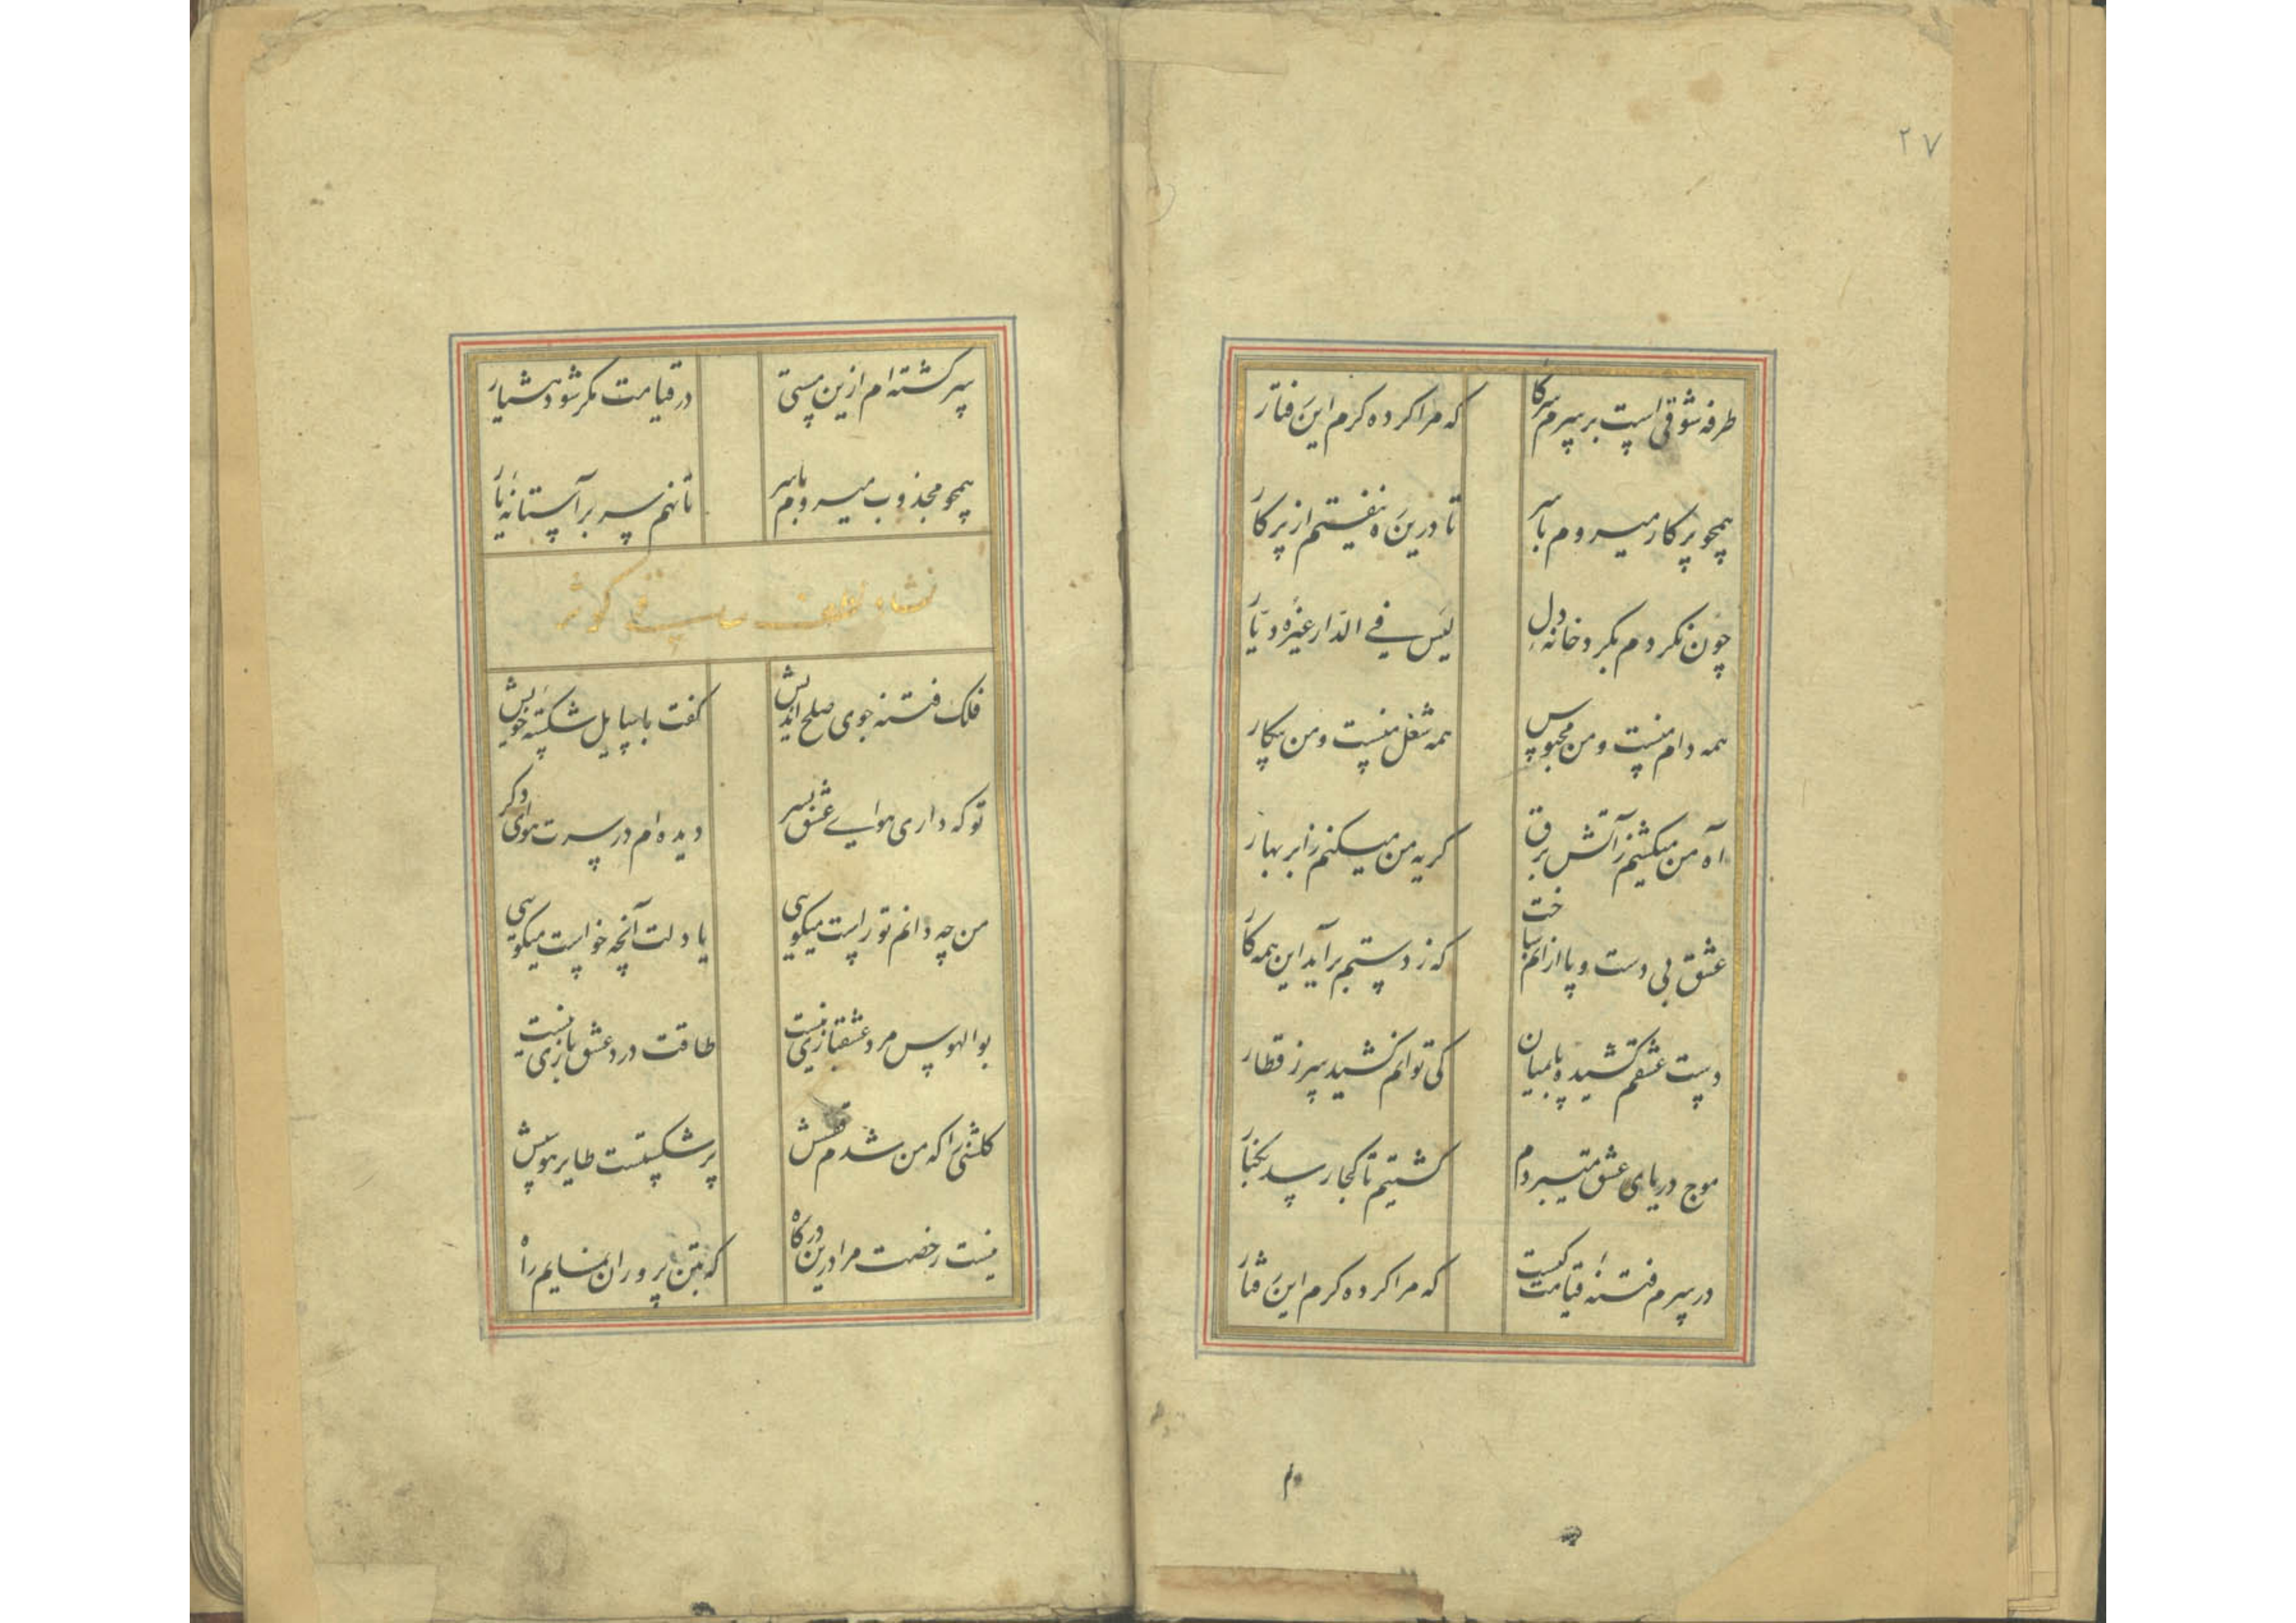 ۲۷
طرفه شوقی است بر سرم سرکار که مرا کرده گرم این رفتار
همچو پرکار میروم با سر تا درین ره نیفتم از پرکار
چون نکردم بکرد خانهٔ دل لیس فی الدار غیره دیار
همه دام منست و من محبوس همه شغل منست و من بیکار
آه من میکشم ز آتش برق کریه من میکنم ز ابر بهار
عشق بی دست و پا از انم ساخت که ز دستم بر آید این همه کار
دست عشقم کشیده پا بمیان کی توانم کشید سر ز قطار
موج دریای عشق میبردم کشتیم تا کجا رسد بکنار
در سرم فتنهٔ قیامت کیست که مرا کرده کرم این رفتار
سر کشته ام ازین مستی در قیامت مکر شود هشیار
همچو مجذوب میروم با سر تا نهم سر بر آستانهٔ یار
نشاه ساقی کوثر
فلک فتنه جوی صلح اندیش کفت با سایل شکستهٔ خویش
تو که داری هوای عشق بسر دیده ام در سرت هوای دکر
من چه دانم تو راست میکویی یا دلت آنچه خواست میکویی
بوالهوس مرد عشقبازی نیست طاقت درد عشق بازی نیست
کلشنی را که من شدم قفسش پر شکستست طایر هوسش
نیست رخصت مرا درین درکاه که بتن پروران نمایم راه